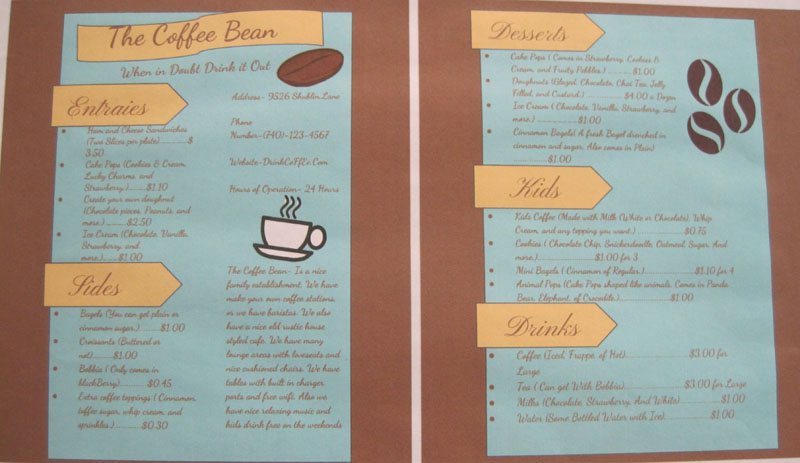 The Coffee Bean
When in Doubt Drink it Out
Entraies
Ham and Cheese Sandwiches
(Two Slices per plate) ............$
3.50
Cake Pops (Cookies & Cream,
Lucky Charms, and
Strawberry.).......$1.10
Create your own doughnut
(Chocolate pieces, Peanuts, and
more.) ........$2.50
Ice Cream (Chocolate, Vanilla,
Strawberry, and
more.)........$1.00
Sides
Bagels (You can get plain or
cinnamon sugar.) .......$1.00
Croissants (Buttered or
not).........$1.00
Bobbis ( Only comes in
blackBerry)...........$0.45
Extra coffee toppings ( Cinnamon,
toffee sugar, whip cream, and
sprinkles.) ...........$0.30
Address- 9526 Lane
Phone
Number-(740)-123-4567
Website-DrinkCoffZz.Com
Hours of Operation- 24 Hours
The Coffee Bean- Is a nice
family establishment. We have
make your own coffee stations,
or we have baristas. We also
have a nice old rustic house
styled cafe. We have many
lounge areas with loveseats and
nice cushioned chairs. We have
tables with built in charger
ports and free wifi. Also we
have nice relaxing music and
kids drink free on the weekends
Desserts
Cake Pops ( Comes in Strawberry, Cookies &
Cream, and Fruity Pebbles.) ...........$1.00
Doughnuts (Glazed, Chocolate, Chai Tea, Jelly
Filled, and Custard.) ............... $4.00 a Dozen
Ice Cream ( Chocolate, Vanilla, Strawberry, and
more.) ...................$1.00
Cinnamon Bagels( A fresh Bagel drenched in
cinnamon and sugar. Also comes in Plain)
............$1.00
Kids
Kids Coffee (Made with Milk (White or Chocolate), Whip
Cream, and any topping you want.) ..................$0.75
Cookies ( Chocolate Chip, Snickerdoodle, Oatmeal, Sugar, And
more.)...................$1.00 for 3
Mini Bagels ( Cinnamon of Regular.)......................$1.10 for 4
Animal Pops (Cake Pops shaped like animals. Comes in Panda
Bear, Elephant, of Crocodile.) ......................$1.00
Drinks
Coffee (Iced, Frappe, of Hot)........................$3.00 for
Large
Tea ( Can get With Bobbis)......................$3.00 for Large
Milks (Chocolate, Strawberry, And White)................$1.00
Water (Some Bottled Water with Ice)..................$1.00